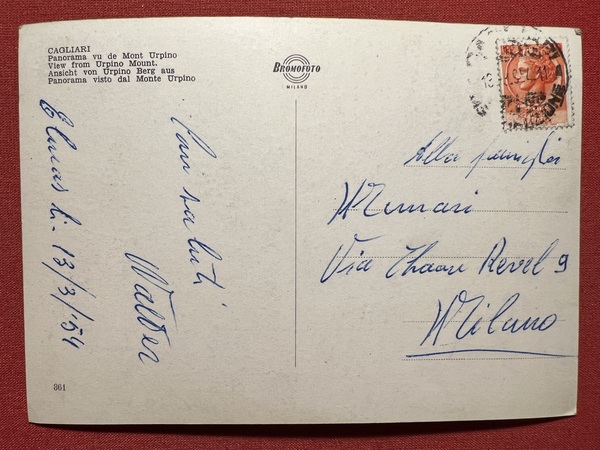 CAGLIARI
Panorama vu de Mont Urpino
View from Urpino Mount.
Ansicht von Urpino Berg aus
Panorama visto dal Monte Urpino
BROMOFOTO
MILANO
Elmas li. 13/3/'54
Cari saluti
Walter
Alla famiglia
Via Thaon Revel 9
Milano
861